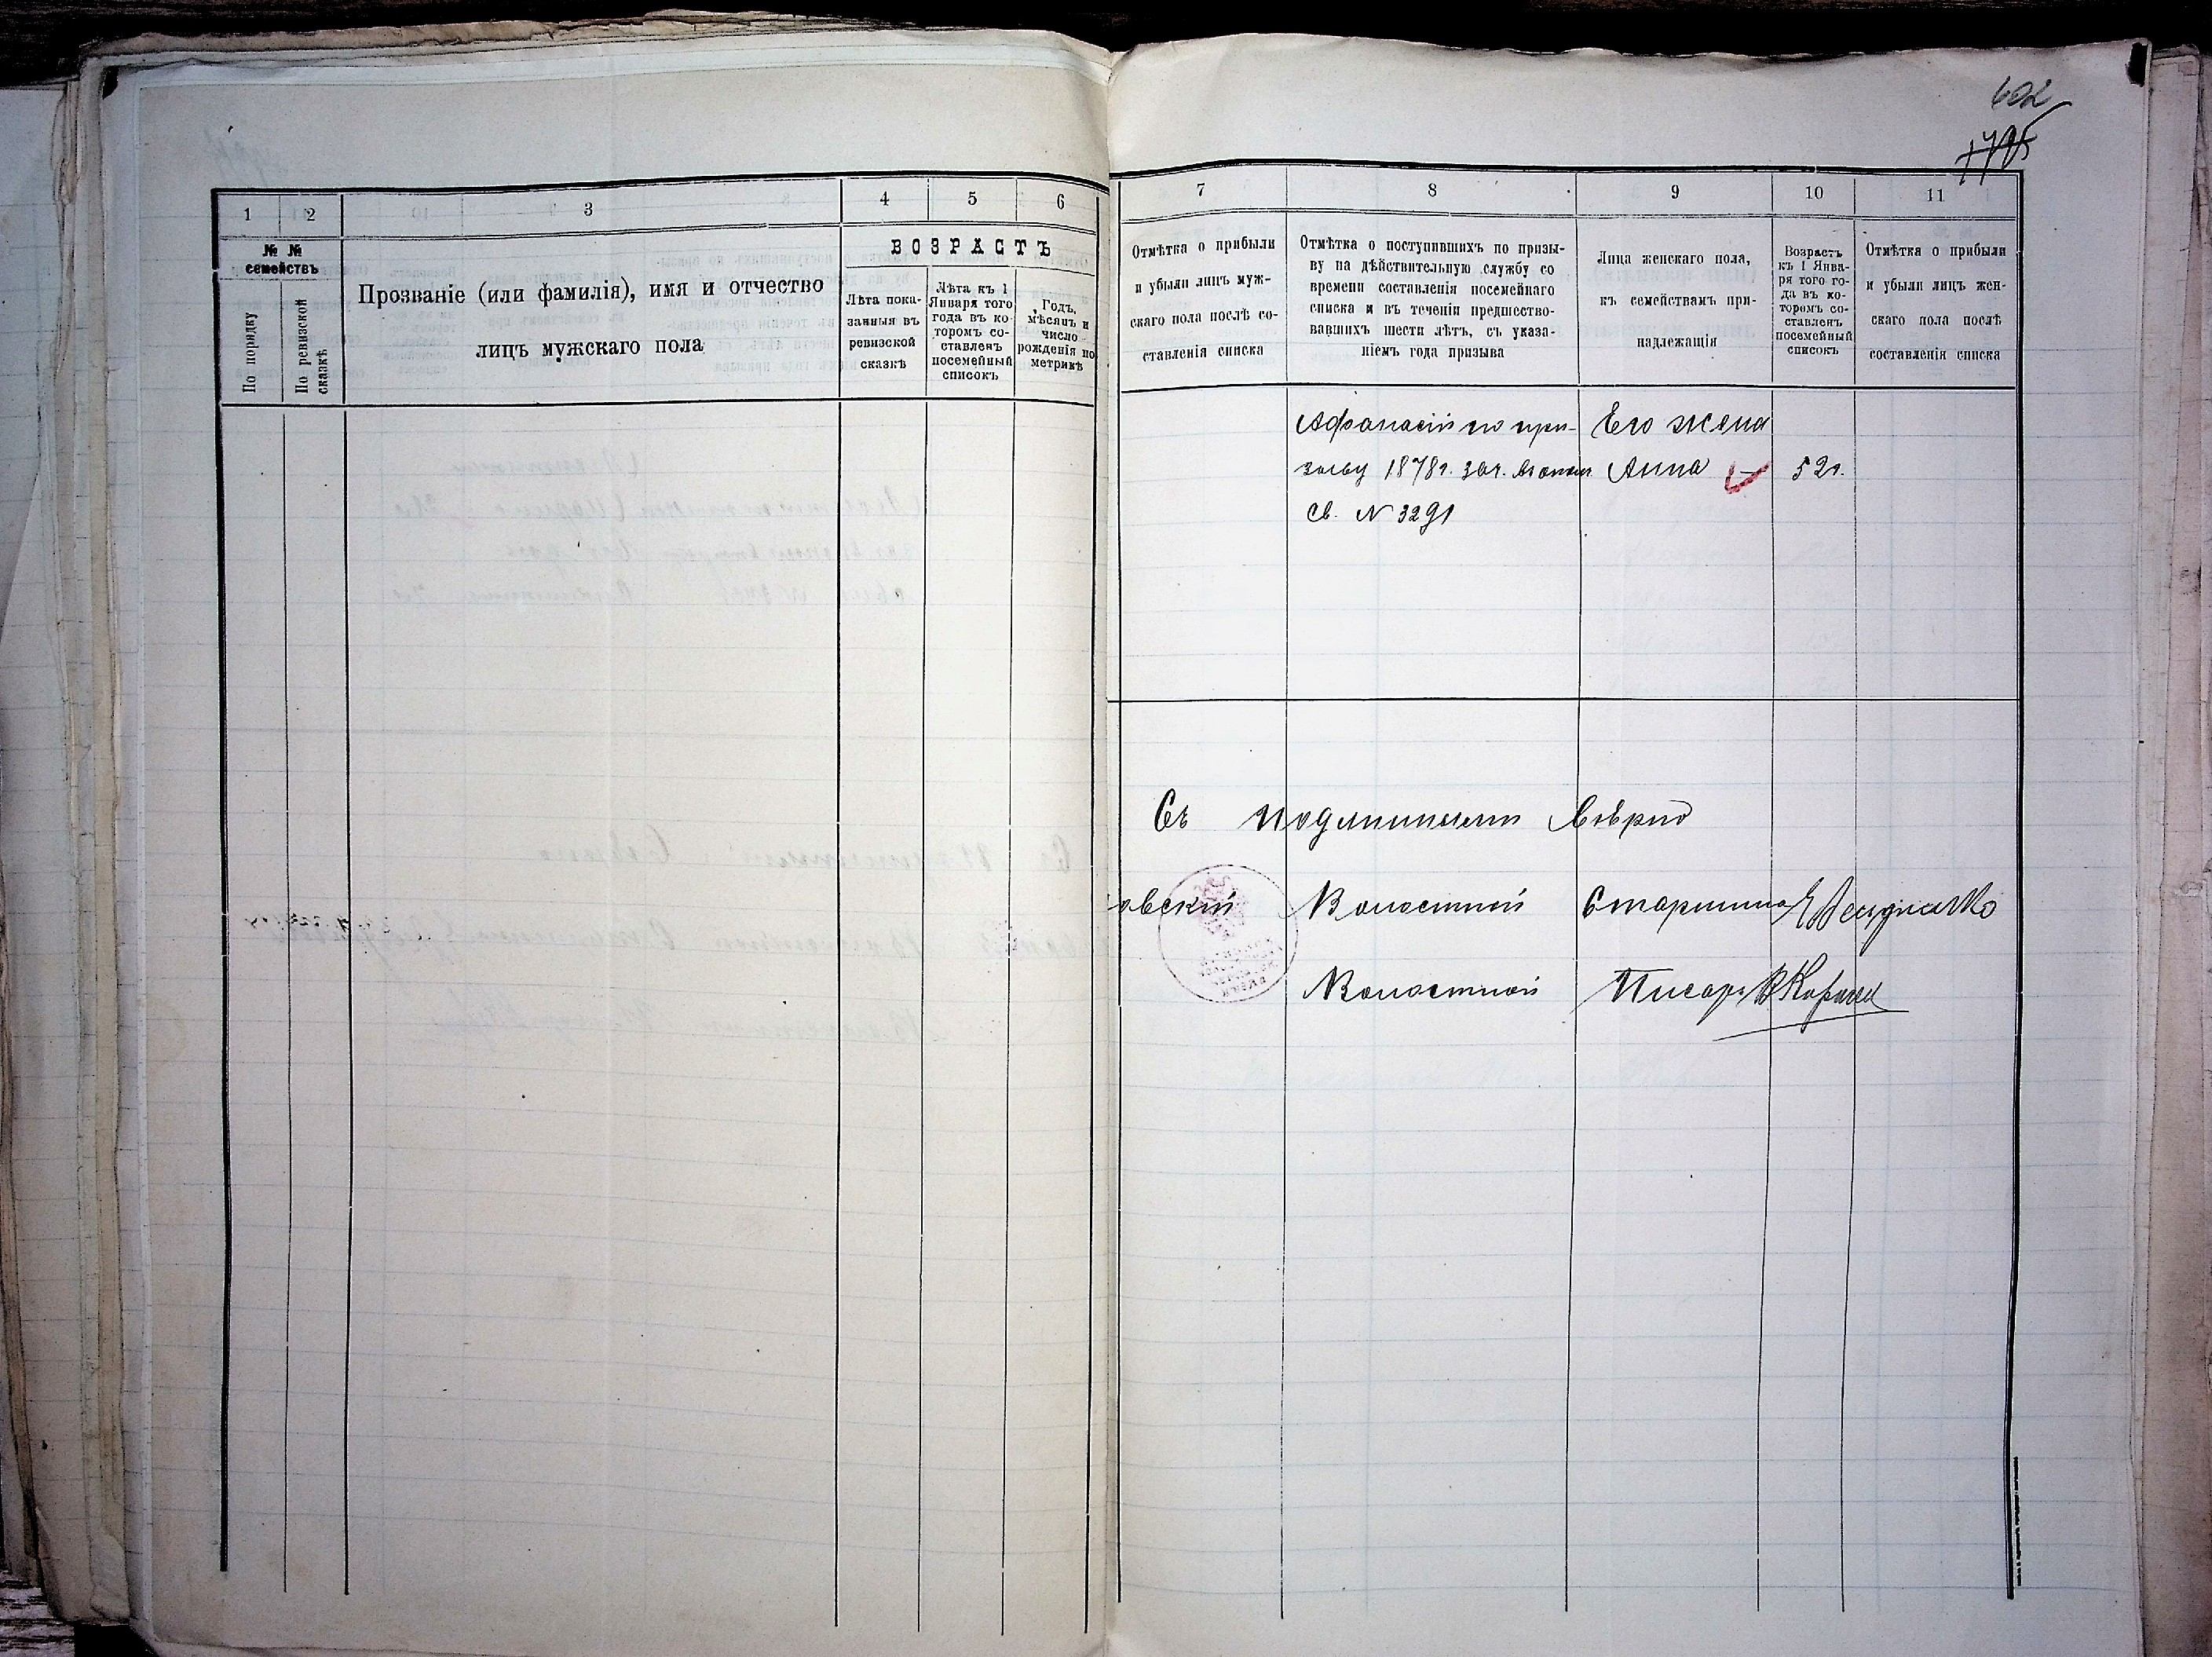 602
1 2 3 4 5 6
№ № семействъ
По порядку
По ревизской сказкѣ
Прозваніе (или фамилія), имя и отчество
лицъ мужскаго пола
ВОЗРАСТЪ
Лѣта пока-
занныя въ
ревизской
сказкѣ
Лѣта къ 1
Января того
года въ ко-
торомъ со-
ставленъ
посемейный
списокъ
Годъ,
мѣсяцъ и
число
рожденія по
метрикѣ
7 8 9 10 11
Отмѣтка о прибыли
и убыли лицъ муж-
скаго пола послѣ со-
ставленія списка
Отмѣтка о поступившихъ по призы-
ву на дѣйствительную службу со
времени составленія посемейнаго
списка и въ теченіи предшество-
вавшихъ шести лѣтъ, съ указа-
ніемъ года призыва
Лица женскаго пола,
къ семействамъ при-
надлежащія
Возрастъ
къ 1 Янва-
ря того го-
да въ ко-
торомъ со-
ставленъ
посемейный
списокъ
Отмѣтка о прибыли
и убыли лицъ жен-
скаго пола послѣ
составленія списка
Афанасій по при-
зыву 1878г. зач. въ опол.
св. № 3291
Его жена
Анна
52г.
Съ подлиннымъ вѣрно
овскій Волостной Старшина
Волостной Писарь